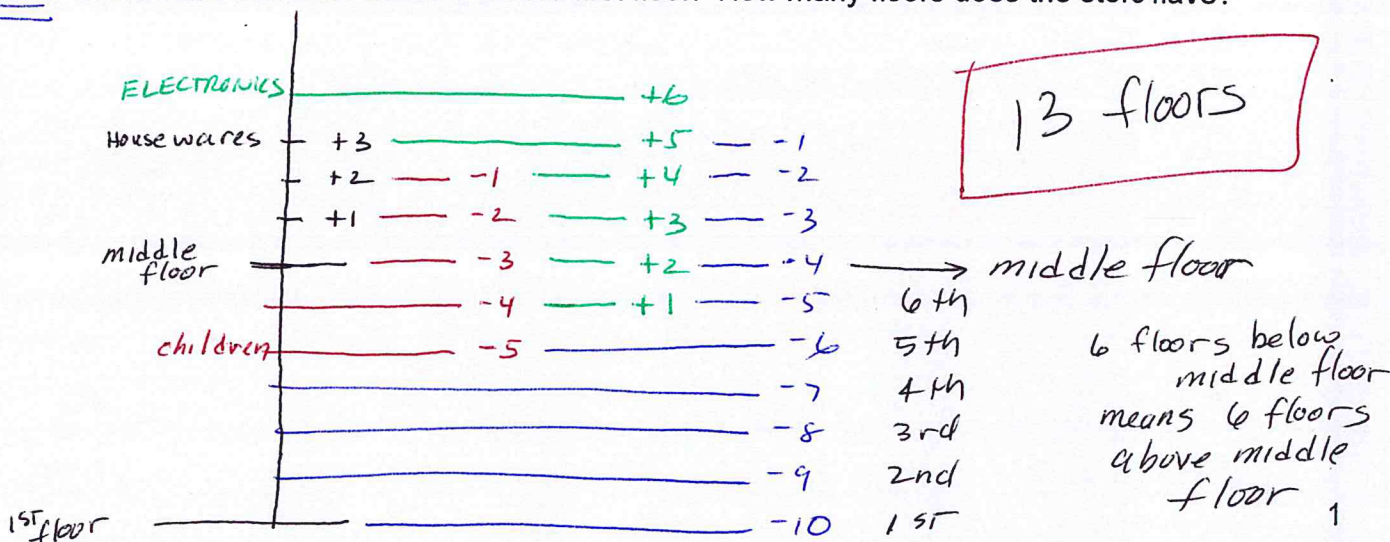 How many floors does the store have?
ELECTRONICS +6
13 floors
Housewares +3 +5 -1
+2 -1 +4 -2
+1 -2 +3 -3
middle floor -3 +2 -4 → middle floor
-4 +1 -5 6th
children -5 -6 5th
-7 4th
-8 3rd
-9 2nd
1ST floor -10 1ST
6 floors below
middle floor
means 6 floors
above middle
floor
1